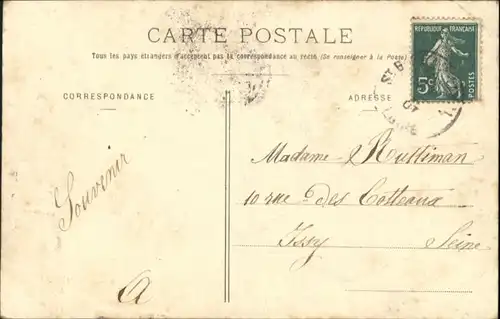 CARTE POSTALE
Tous les pays étrangers n'acceptent pas la correspondance au recto. (Se renseigner à la Poste)
CORRESPONDANCE
ADRESSE
REPUBLIQUE FRANÇAISE
5c
POSTES
07
LOIRE
Souvenir
A
Madame Ruttiman
10 rue des Cotteaux
Issy Seine